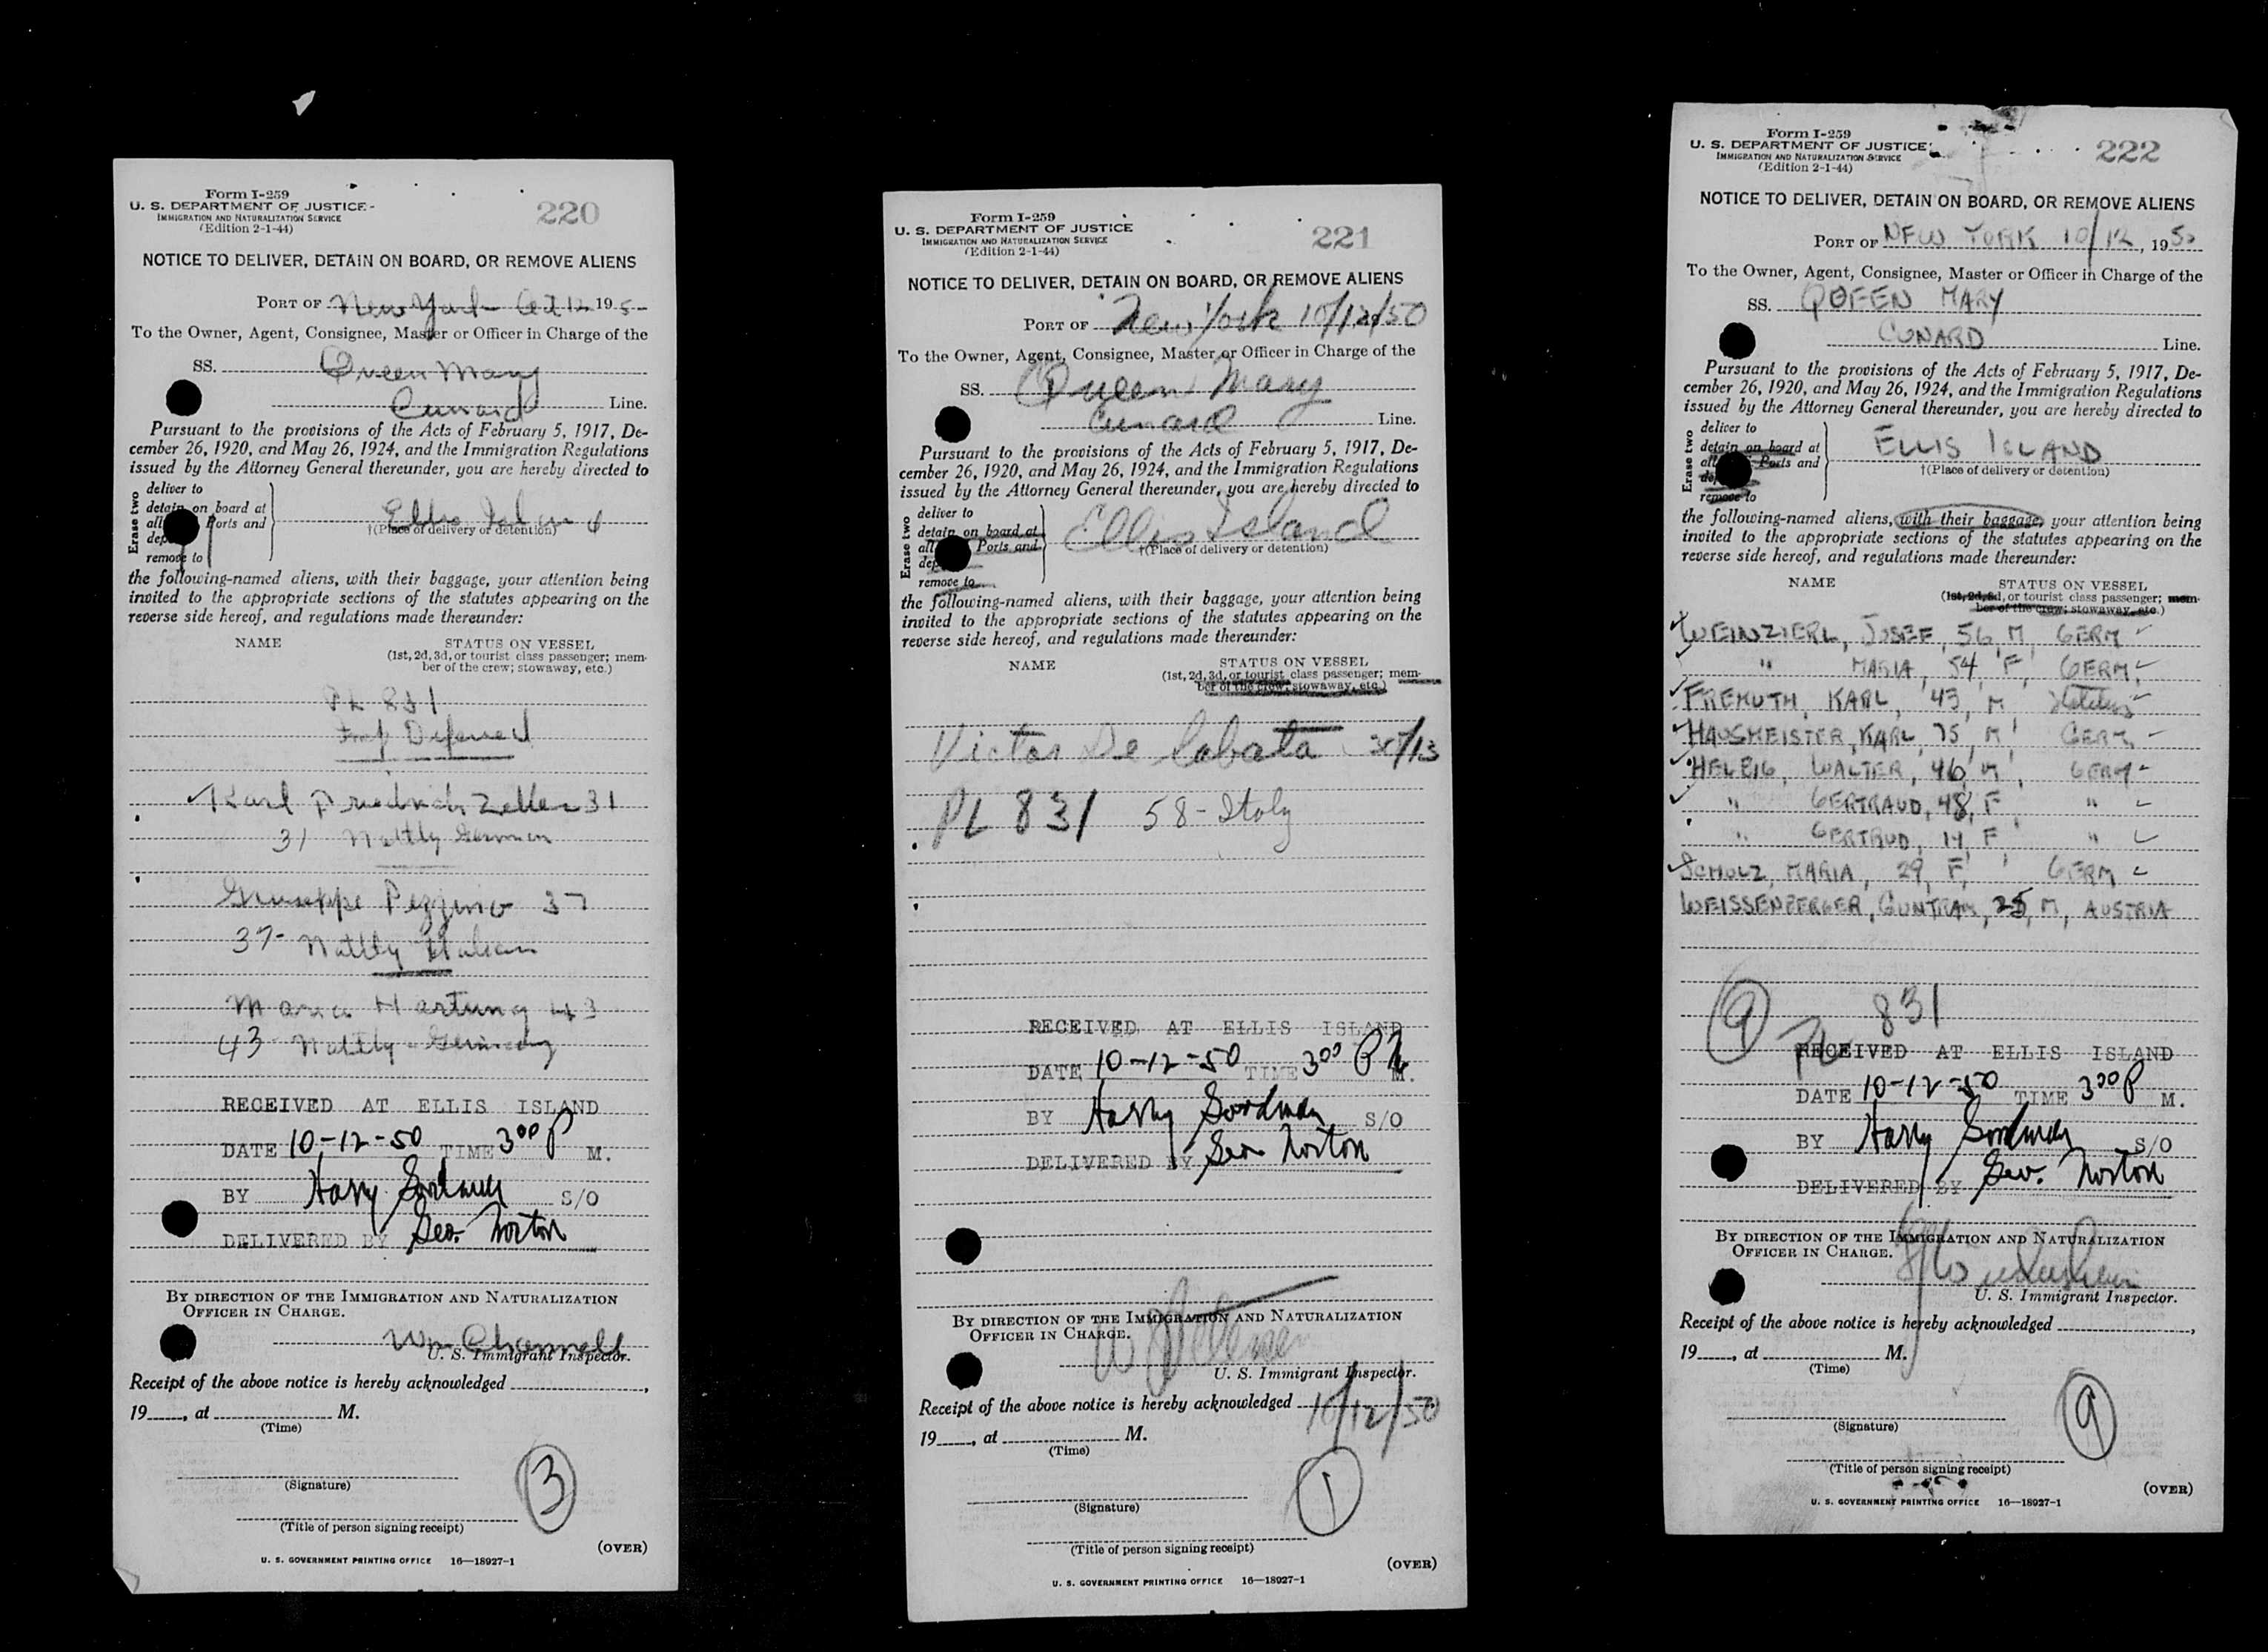 Form I-259
U. S. DEPARTMENT OF JUSTICE
IMMIGRATION AND NATURALIZATION SERVICE
(Edition 2-1-44)
220
NOTICE TO DELIVER, DETAIN ON BOARD, OR REMOVE ALIENS
PORT OF New York Oct 12 19 5-
To the Owner, Agent, Consignee, Master or Officer in Charge of the
SS. Queen Mary
Cunard Line.
Pursuant to the provisions of the Acts of February 5, 1917, De-
cember 26, 1920, and May 26, 1924, and the Immigration Regulations
issued by the Attorney General thereunder, you are hereby directed to
Erase two
deliver to
detain on board at
all Ports and
dep
remove to
Ellis Island
†(Place of delivery or detention)
the following-named aliens, with their baggage, your attention being
invited to the appropriate sections of the statutes appearing on the
reverse side hereof, and regulations made thereunder:
NAME STATUS ON VESSEL
(1st, 2d, 3d, or tourist class passenger; mem-
ber of the crew; stowaway, etc.)
PL 831
Deferred
Karl Friedrich Zeller 31
31 Natlty German
Giuseppe Pezzino 37
37- Natlty Italian
Maria Hartung 43
43- Natlty - Germany
RECEIVED AT ELLIS ISLAND
DATE 10-12-50 TIME 3 00 P M.
BY Harry Goodman S/O
DELIVERED BY Geo. Norton
BY DIRECTION OF THE IMMIGRATION AND NATURALIZATION
OFFICER IN CHARGE.
Wm Channell
U. S. Immigrant Inspector.
Receipt of the above notice is hereby acknowledged
19 , at M.
(Time)
3
(Signature)
(Title of person signing receipt)
(OVER)
U. S. GOVERNMENT PRINTING OFFICE 16—18927-1
Form I-259
U. S. DEPARTMENT OF JUSTICE
IMMIGRATION AND NATURALIZATION SERVICE
(Edition 2-1-44)
221
NOTICE TO DELIVER, DETAIN ON BOARD, OR REMOVE ALIENS
PORT OF New York 10/12/50
To the Owner, Agent, Consignee, Master or Officer in Charge of the
SS. Queen Mary
Cunard Line.
Pursuant to the provisions of the Acts of February 5, 1917, De-
cember 26, 1920, and May 26, 1924, and the Immigration Regulations
issued by the Attorney General thereunder, you are hereby directed to
Erase two
deliver to
detain on board at
all Ports and
dep
remove to
Ellis Island
†(Place of delivery or detention)
the following-named aliens, with their baggage, your attention being
invited to the appropriate sections of the statutes appearing on the
reverse side hereof, and regulations made thereunder:
NAME STATUS ON VESSEL
(1st, 2d, 3d, or tourist class passenger; mem-
ber of the crew; stowaway, etc.)
Victor De Sabata
PL 831 58 - Italy
RECEIVED AT ELLIS ISLAND
DATE 10-12-50 TIME 3 00 P M.
BY Harry Goodman S/O
DELIVERED BY Geo Norton
BY DIRECTION OF THE IMMIGRATION AND NATURALIZATION
OFFICER IN CHARGE.
U. S. Immigrant Inspector.
Receipt of the above notice is hereby acknowledged 10/12/50
19 , at M.
(Time)
1
(Signature)
(Title of person signing receipt)
(OVER)
U. S. GOVERNMENT PRINTING OFFICE 16—18927-1
Form I-259
U. S. DEPARTMENT OF JUSTICE
IMMIGRATION AND NATURALIZATION SERVICE
(Edition 2-1-44)
222
NOTICE TO DELIVER, DETAIN ON BOARD, OR REMOVE ALIENS
PORT OF NEW YORK 10/12, 19 50
To the Owner, Agent, Consignee, Master or Officer in Charge of the
SS. QUEEN MARY
CUNARD Line.
Pursuant to the provisions of the Acts of February 5, 1917, De-
cember 26, 1920, and May 26, 1924, and the Immigration Regulations
issued by the Attorney General thereunder, you are hereby directed to
Erase two
deliver to
detain on board at
all Ports and
dep
remove to
ELLIS ISLAND
†(Place of delivery or detention)
the following-named aliens, with their baggage, your attention being
invited to the appropriate sections of the statutes appearing on the
reverse side hereof, and regulations made thereunder:
NAME STATUS ON VESSEL
(1st, 2d, 3d, or tourist class passenger; mem-
ber of the crew; stowaway, etc.)
WEINZIERL, JOSEF, 56, M, GERM
" MARIA, 54, F, GERM
FREMUTH, KARL, 43, M
HAUSMEISTER, KARL, 75, M GERM
HELBIG, WALTER, 46, M, GERM
" GERTRAUD, 48, F "
" GERTRUD, 14, F "
SCHOLZ, MARIA, 29, F, GERM
WEISSENBERGER, GUNTRAM, 25, M, AUSTRIA
9 PL 831
RECEIVED AT ELLIS ISLAND
DATE 10-12-50 TIME 3 00 P M.
BY Harry Goodman S/O
DELIVERED BY Geo. Norton
BY DIRECTION OF THE IMMIGRATION AND NATURALIZATION
OFFICER IN CHARGE.
U. S. Immigrant Inspector.
Receipt of the above notice is hereby acknowledged ,
19 , at M.
(Time)
9
(Signature)
(Title of person signing receipt)
(OVER)
U. S. GOVERNMENT PRINTING OFFICE 16—18927-1